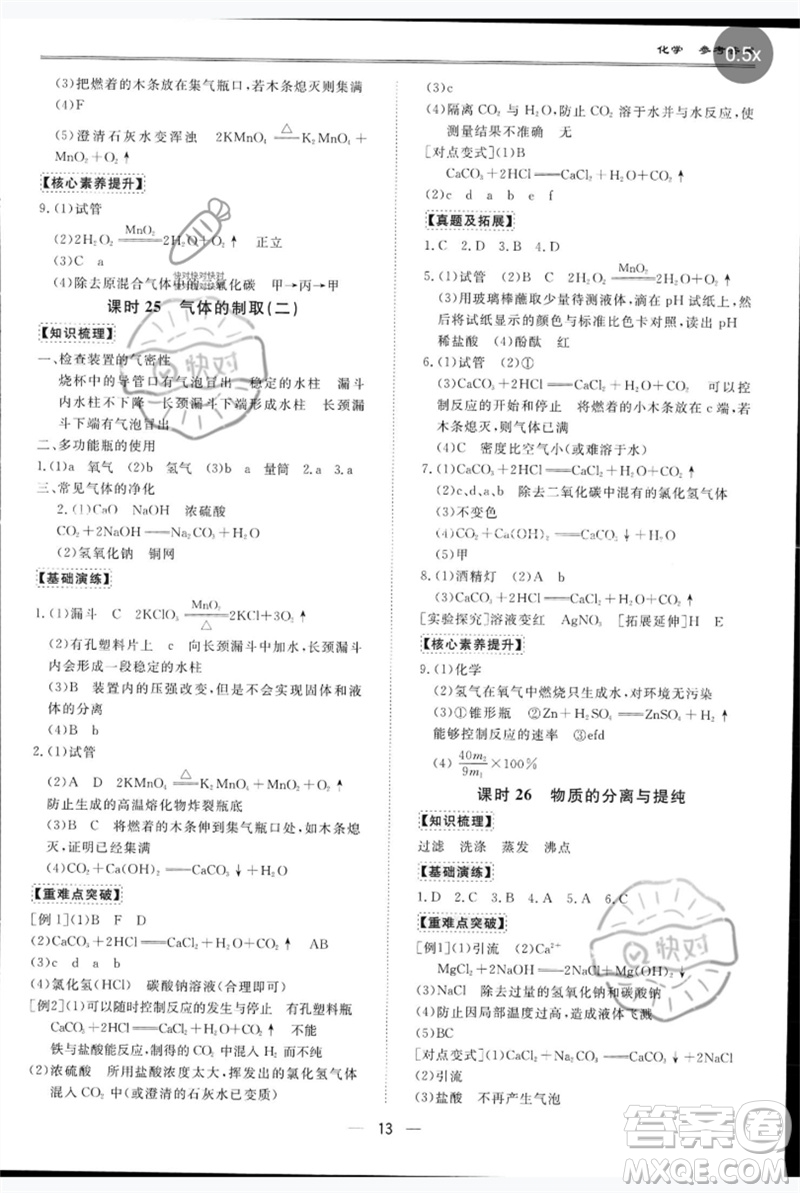 化学 参考
0.5x
(3)把燃着的木条放在集气瓶口,若木条熄灭则集满
(4)F
(5)澄清石灰水变浑浊 2KMnO₄ =△= K₂MnO₄ +
MnO₂ + O₂↑
【核心素养提升】
9.(1)试管
(2)2H₂O₂ =MnO₂= 2H₂O+O₂↑ 正立
(3)C a
(4)除去原混合气体中的二氧化碳 甲→丙→甲
课时 25 气体的制取(二)
【知识梳理】
一、检查装置的气密性
烧杯中的导管口有气泡冒出 稳定的水柱 漏斗
内水柱不下降 长颈漏斗下端形成水柱 长颈漏斗
下端有气泡冒出
二、多功能瓶的使用
1.(1)a 氧气 (2)b 氢气 (3)a 量筒 2.a 3.a
三、常见气体的净化
2.(1)CaO NaOH 浓硫酸
CO₂+2NaOH══Na₂CO₃+H₂O
(2)氢氧化钠 铜网
【基础演练】
1.(1)漏斗 C 2KClO₃ =MnO₂△= 2KCl+3O₂↑
(2)有孔塑料片上 c 向长颈漏斗中加水,长颈漏
斗中形成一段稳定的水柱
(3)B 装置内的压强改变,但是具有小孔,没有固液
体的分离
(4)B b
2.(1)试管
(2)A D 2KMnO₄ =△= K₂MnO₄+MnO₂+O₂↑
防止生成的高温熔化物炸裂瓶底
(3)B c 将燃着的木条伸到集气瓶口处,如木条熄
灭,证明已经集满
(4)CO₂+Ca(OH)₂══CaCO₃↓+H₂O
【重难点突破】
[例1](1)B F D
(2)CaCO₃+2HCl══CaCl₂+H₂O+CO₂↑ AB
(3)c d a b
(4)氯化氢(HCl) 碳酸钠溶液(合理即可)
[例2](1)可以随时控制反应的发生与停止 有孔塑料瓶
CaCO₃+2HCl══CaCl₂+H₂O+CO₂↑ 不能
铁与盐酸能反应,制得的 CO₂ 中混入 H₂(合理即可)
(2)浓溶液 所用的盐酸浓度太大,挥发出的氯化氢气体
混入 CO₂ 中(或澄清的石灰水已变质)
(3)c
(4)隔离 CO₂ 与水,防止 CO₂ 溶于水并与水反应,使
测量结果不准确 无
[对点变式](1)B
CaCO₃+2HCl══CaCl₂+H₂O+CO₂↑
(2)c d a b e f
【真题及拓展】
1.C 2.D 3.B 4.D
5.(1)试管 (2)2H₂O₂ =MnO₂= 2H₂O+O₂↑
(3)用玻璃棒蘸取少量待测液体,滴在 pH 试纸上,
将试纸显示的颜色与标准比色卡对照,读出 pH
稀盐酸 (4)酚酞 红
6.(1)试管 (2)①
(3)CaCO₃+2HCl══CaCl₂+H₂O+CO₂↑ 可以
控制反应的开始和停止 将燃着的小木条放在 c 端,若
木条熄灭,则气体已满
(4)C 密度比空气小(或难溶于水)
7.(1)CaCO₃+2HCl══CaCl₂+H₂O+CO₂↑
(2)c、d、a、b 除去二氧化碳中混有的氯化氢气体
(3)不变色
(4)CO₂+Ca(OH)₂══CaCO₃↓+H₂O
(5)甲
8.(1)酒精灯 (2)A b
[实验探究]溶液变红 AgNO₃ [拓展延伸]H E
【核心素养提升】
9.(1)化学
(2)氢气在氧气中燃烧只生成水,对环境无污染
(3)①锥形瓶 ②Zn+H₂SO₄══ZnSO₄+H₂↑
能够控制反应的速率 ③efd
(4) 40m₂/9m₁ ×100%
课时 26 物质的分离与提纯
【知识梳理】
过滤 洗涤 蒸发 沸点
【基础演练】
1.D 2.C 3.B 4.A 5.A 6.C
【重难点突破】
[例1](1)引流 (2)Ca²⁺
MgCl₂+2NaOH══Mg(OH)₂↓+2NaCl
(3)NaCl 除去过量的氢氧化钠和碳酸钠
(4)防止因局部温度过高,造成液滴飞溅
(5)BC
[对点变式](1)CaCl₂+Na₂CO₃══CaCO₃↓+2NaCl
(2)引流
(3)盐酸 不再产生气泡
13
快对快对快对
快对
快对
答案圈
MXQE.COM